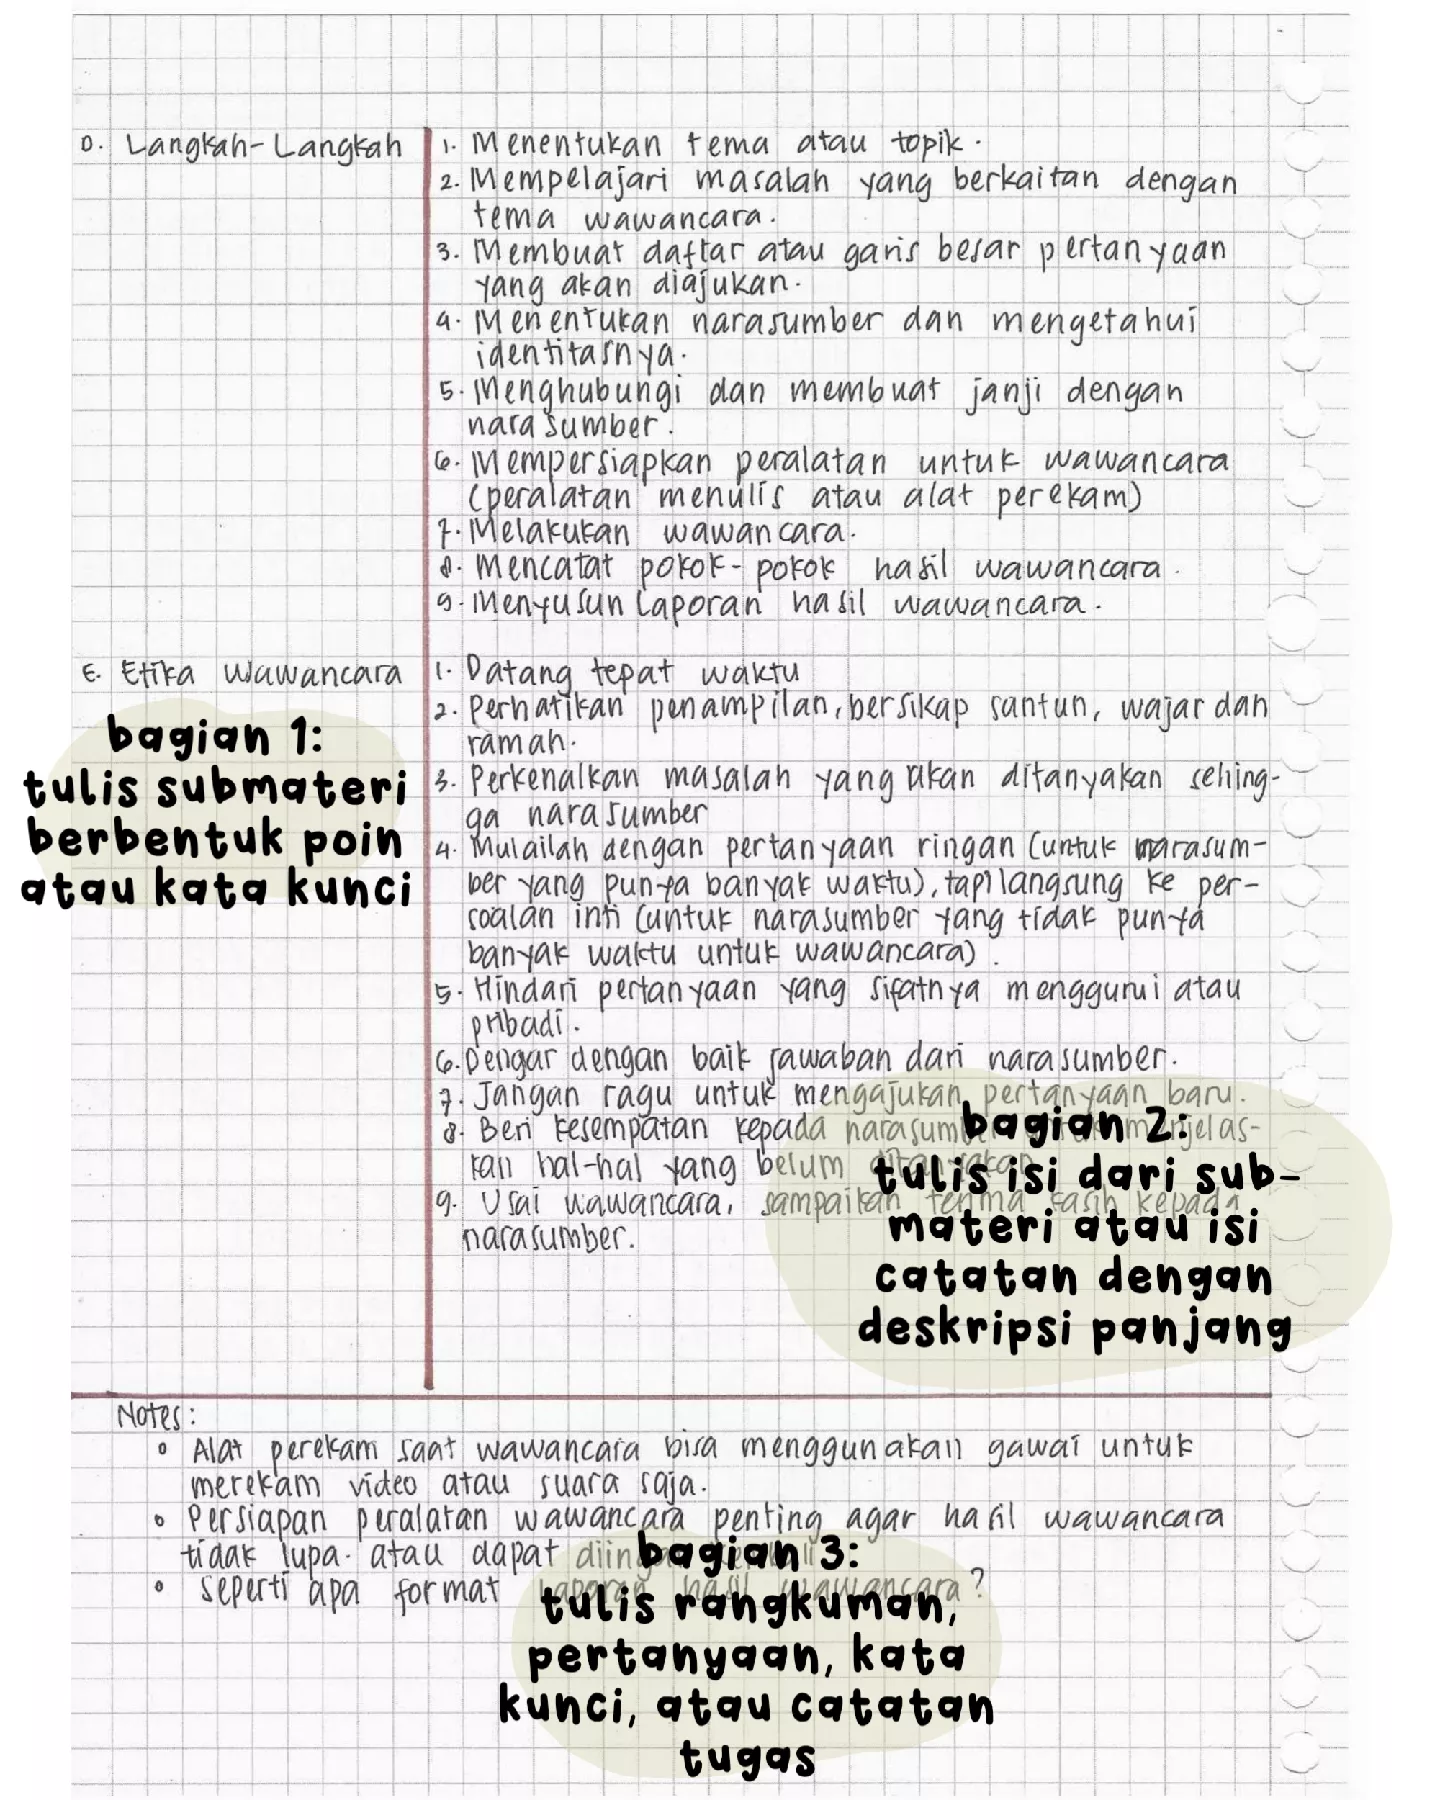 D. Langkah-Langkah
1. Menentukan tema atau topik.
2. Mempelajari masalah yang berkaitan dengan
tema wawancara.
3. Membuat daftar atau garis besar pertanyaan
yang akan diajukan.
4. Menentukan narasumber dan mengetahui
identitasnya.
5. Menghubungi dan membuat janji dengan
narasumber.
6. Mempersiapkan peralatan untuk wawancara
(peralatan menulis atau alat perekam)
7. Melakukan wawancara.
8. Mencatat pokok-pokok hasil wawancara.
9. Menyusun laporan hasil wawancara.
E. Etika Wawancara
1. Datang tepat waktu
2. Perhatikan penampilan, bersikap santun, wajar dan
ramah.
3. Perkenalkan masalah yang akan ditanyakan sehing-
ga narasumber
4. Mulailah dengan pertanyaan ringan (untuk narasum-
ber yang punya banyak waktu), tapi langsung ke per-
soalan inti (untuk narasumber yang tidak punya
banyak waktu untuk wawancara).
5. Hindari pertanyaan yang sifatnya menggurui atau
pribadi.
6. Dengar dengan baik jawaban dari narasumber.
7. Jangan ragu untuk mengajukan pertanyaan baru.
8. Beri kesempatan kepada menjelas-
kan hal-hal yang belum
9. Usai wawancara, sampaikan terima kasih kepada
narasumber.
bagian 1:
tulis submateri
berbentuk poin
atau kata kunci
bagian 2:
tulis isi dari sub-
materi atau isi
catatan dengan
deskripsi panjang
Notes:
• Alat perekam saat wawancara bisa menggunakan gawai untuk
merekam video atau suara saja.
• Persiapan peralatan wawancara penting agar hasil wawancara
tidak lupa. atau dapat
• seperti apa format laporan hasil wawancara?
bagian 3:
tulis rangkuman,
pertanyaan, kata
kunci, atau catatan
tugas